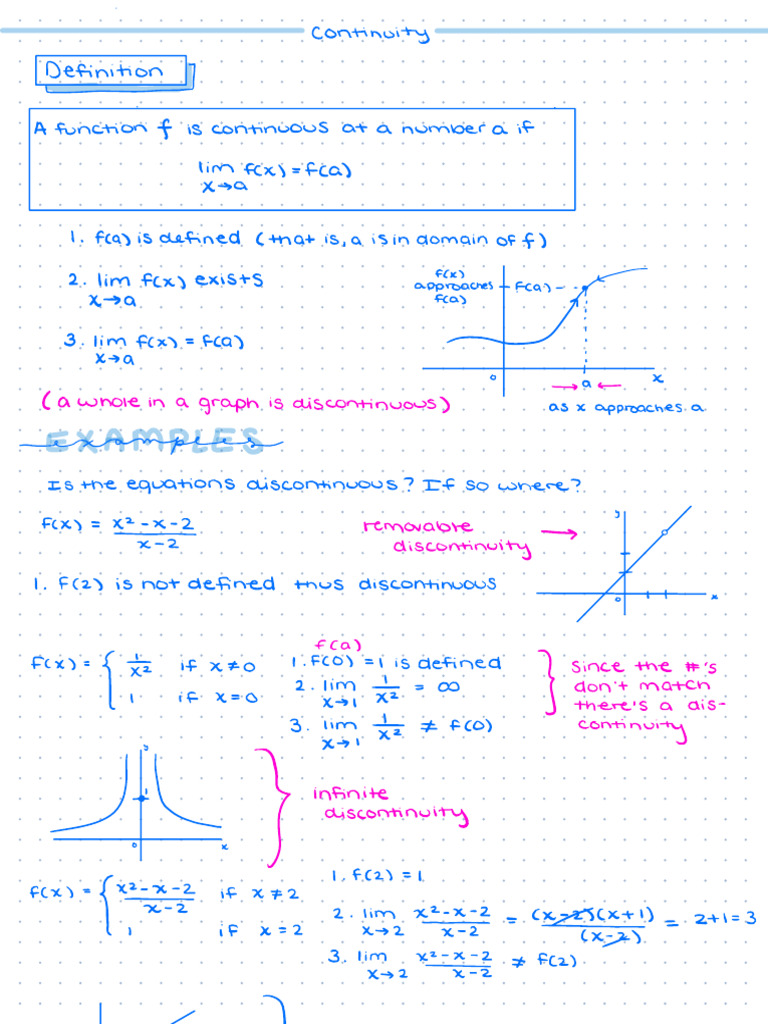 Continuity
Definition
A function f is continuous at a number a if
lim f(x) = f(a)
x→a
1. f(a) is defined (that is, a is in domain of f)
2. lim f(x) exists
x→a
3. lim f(x) = f(a)
x→a
f(x)
approaches
f(a)
f(a)
0
a
x
as x approaches a
(a whole in a graph is discontinuous)
EXAMPLES
examples
Is the equations discontinuous? If so where?
f(x) = x² - x - 2
x - 2
removable
discontinuity
y
0
x
1. f(2) is not defined thus discontinuous
f(x) = { 1/x² if x ≠ 0
1 if x = 0
f(a)
1. f(0) = 1 is defined
2. lim 1/x² = ∞
x→1
3. lim 1/x² ≠ f(0)
x→1
Since the #'s
don't match
there's a dis-
continuity
y
1
0
x
infinite
discontinuity
f(x) = { x² - x - 2 / x - 2 if x ≠ 2
1 if x = 2
1. f(2) = 1
2. lim x² - x - 2 / x - 2 = (x-2)(x+1) / (x-2) = 2+1=3
x→2
3. lim x² - x - 2 / x - 2 ≠ f(2)
x→2